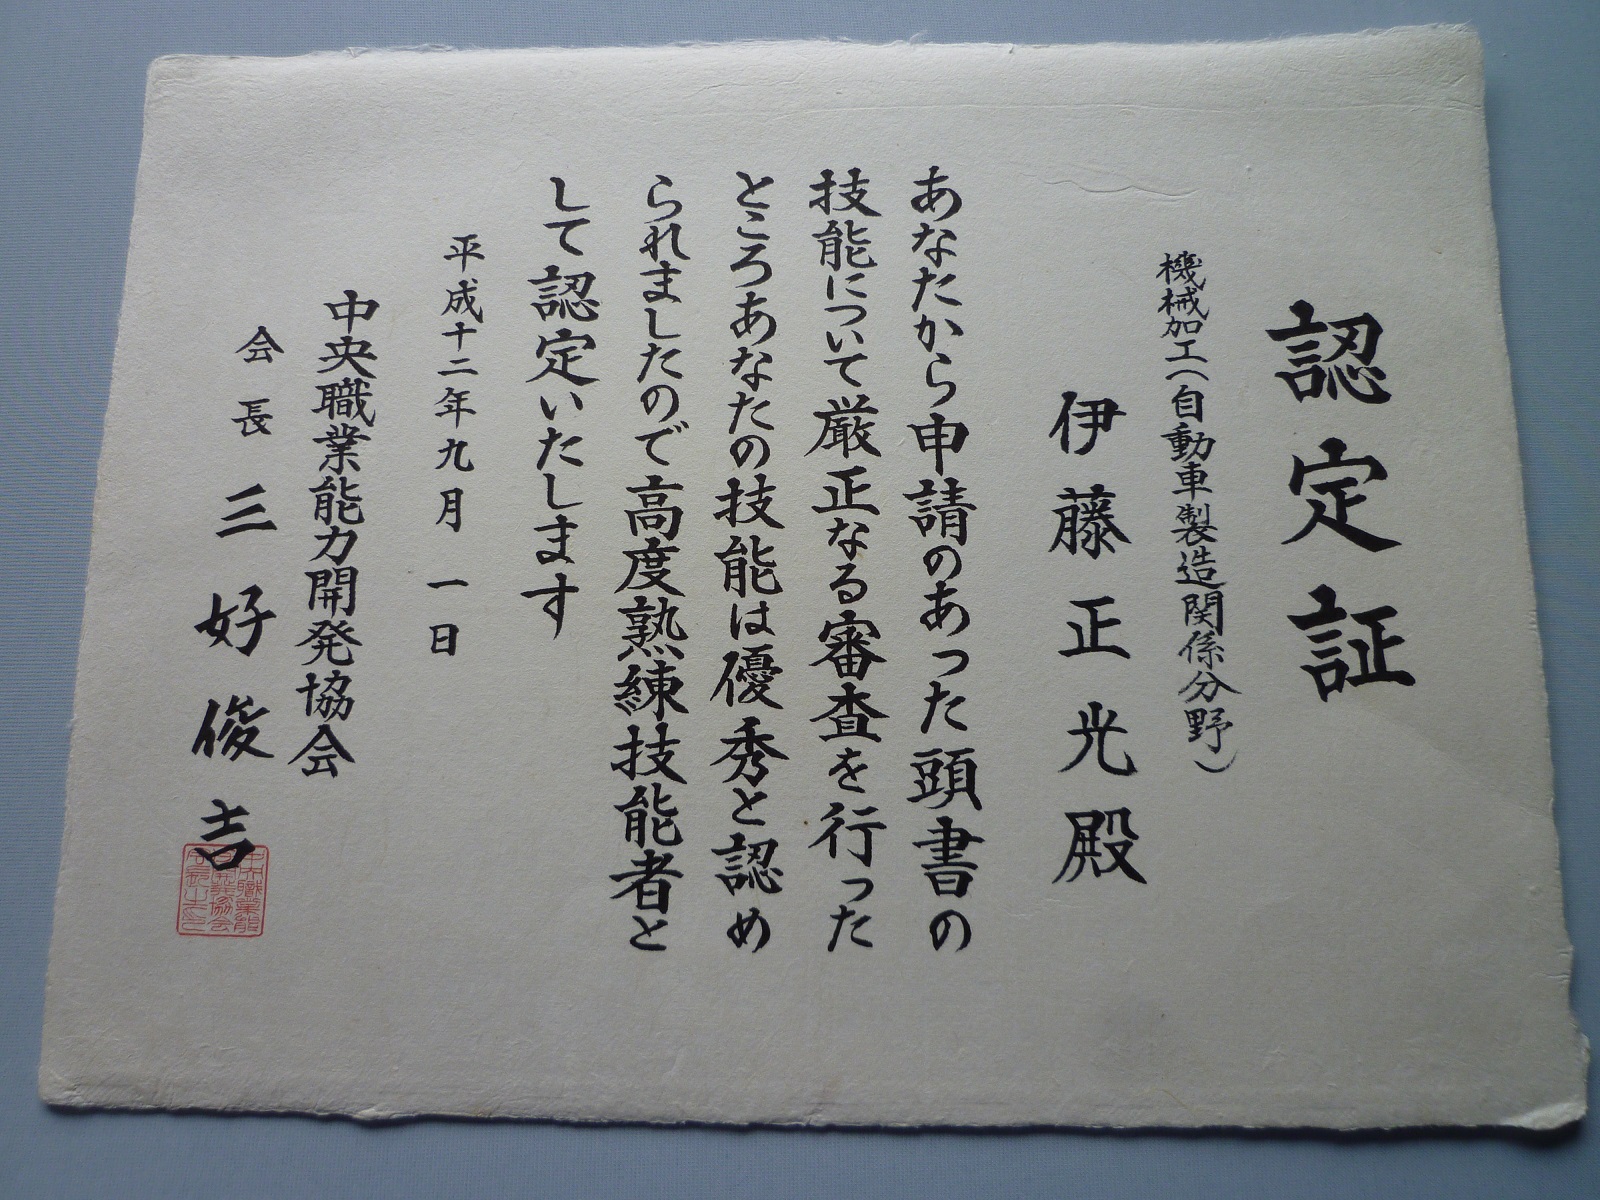 認定証
機械加工(自動車製造関係分野)
伊藤正光殿
あなたから申請のあった頭書の
技能について厳正なる審査を行った
ところあなたの技能は優秀と認め
られましたので高度熟練技能者と
して認定いたします
平成十二年九月一日
中央職業能力開発協会
会長三好俊吉